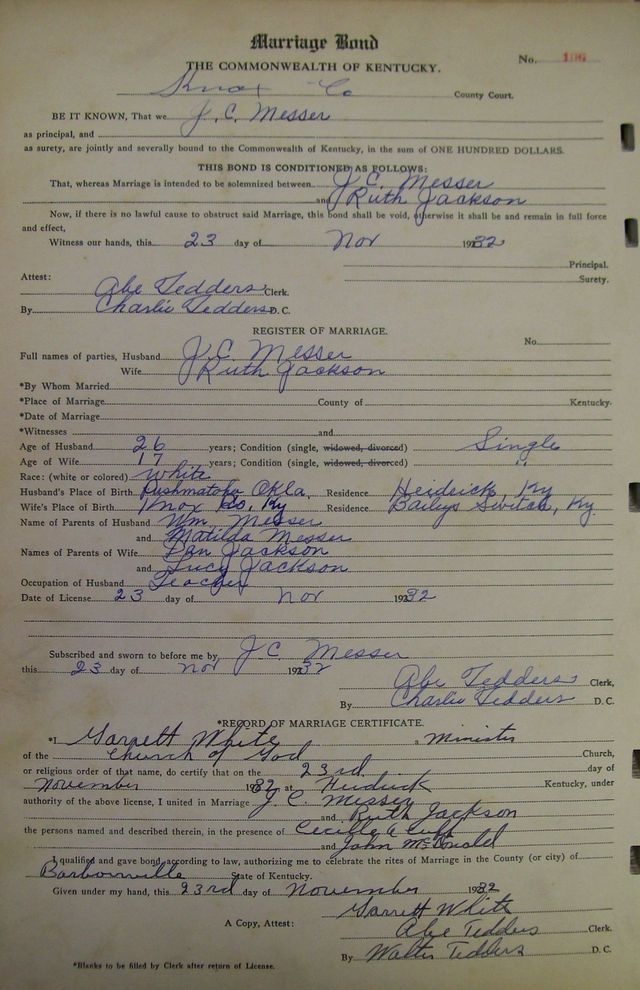 Marriage Bond
No. 196
THE COMMONWEALTH OF KENTUCKY.
Knox Co County Court.
BE IT KNOWN, That we J. C. Messer
as principal, and
as surety, are jointly and severally bound to the Commonwealth of Kentucky, in the sum of ONE HUNDRED DOLLARS.
THIS BOND IS CONDITIONED AS FOLLOWS:
That, whereas Marriage is intended to be solemnized between J. C. Messer
and Ruth Jackson
Now, if there is no lawful cause to obstruct said Marriage, this bond shall be void, otherwise it shall be and remain in full force
and effect,
Witness our hands, this 23 day of Nov 1932
Principal.
Surety.
Attest:
Abe Tedders Clerk.
By Charlie Tedders D. C.
REGISTER OF MARRIAGE.
No.
Full names of parties, Husband J. C. Messer
Wife Ruth Jackson
*By Whom Married
*Place of Marriage County of Kentucky.
*Date of Marriage
*Witnesses and
Age of Husband 26 years; Condition (single, widowed, divorced) Single
Age of Wife 17 years; Condition (single, widowed, divorced) "
Race: (white or colored) White
Husband's Place of Birth Pushmataha Okla. Residence Heidrick Ky
Wife's Place of Birth Knox Co, Ky Residence Bailys Switch, Ky.
Name of Parents of Husband Wm. Messer
and Matilda Messer
Names of Parents of Wife Dan Jackson
and Lucy Jackson
Occupation of Husband Teacher
Date of License 23 day of Nov 1932
Subscribed and sworn to before me by J. C. Messer
this 23 day of Nov 1932
Abe Tedders Clerk,
By Charlie Tedders D. C.
*RECORD OF MARRIAGE CERTIFICATE.
*I Garrett White a Minister
of the Church of God Church,
or religious order of that name, do certify that on the 23rd day of
November 1932 at Heidrick Kentucky, under
authority of the above license, I united in Marriage J. C. Messer
and Ruth Jackson
the persons named and described therein, in the presence of Cecille
and John McDonald
I qualified and gave bond according to law, authorizing me to celebrate the rites of Marriage in the County (or city) of
Barbourville State of Kentucky.
Given under my hand, this 23rd day of November 1932
Garrett White
A Copy, Attest: Abe Tedders Clerk.
By Walter Tedders D. C.
*Blanks to be filled by Clerk after return of License.